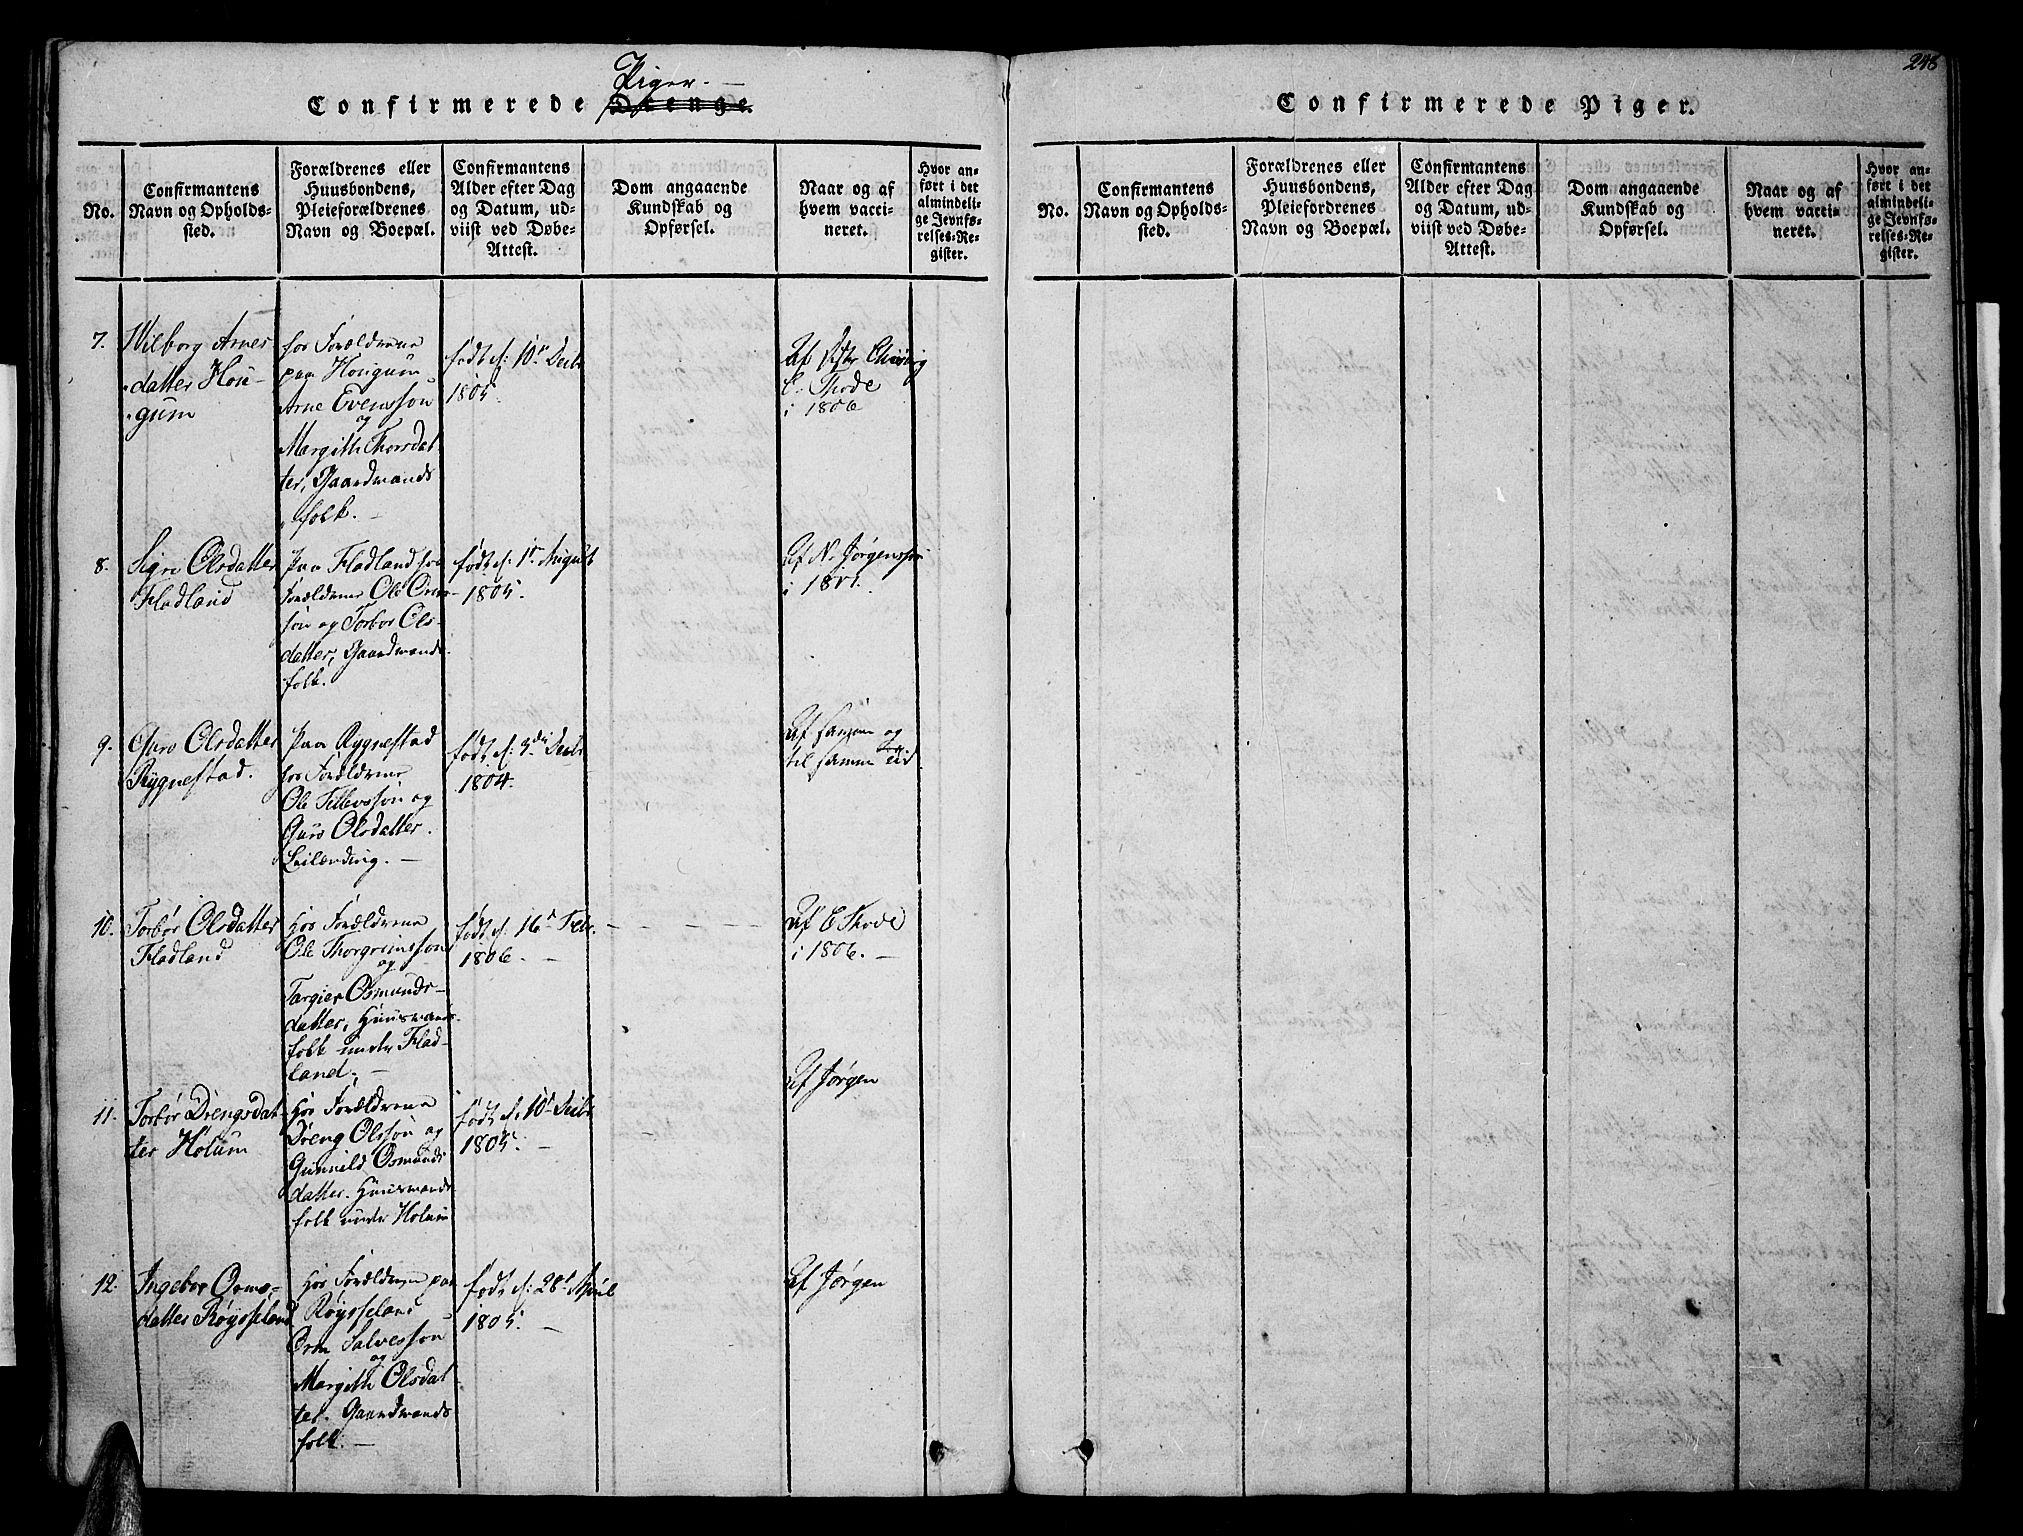 248
Piger.
Confirmerede Drenge.
No.
Confirmantens
Navn og Opholds-
sted.
Forældrenes eller
Huusbondens,
Pleieforældrenes
Navn og Boepæl.
Confirmantens
Alder efter Dag
og Datum, ud-
viist ved Døbe-
Attest.
Dom angaaende
Kundskab og
Opførsel.
Naar og af
hvem vacci-
neret.
Hvor an-
ført i det
almindeli-
ge Jevnfø-
relses-Re-
gister.
7.
Wilborg Arnes
datter Hou-
gum
hos Forældrene
paa Hougum
Arne Evensson
og
Margith Thorsdat
ter, Gaardmands
folk.
født d: 10de Decbr
1805.
Af
E. Thode
i 1806
8.
Sigri Olsdatter
Fladland
paa Fladland hos
Forældrene Ole Orms-
søn og Torbor Ols-
datter, Gaardmands
folk.
født d: 1ste August
1805.
Af N. Jørgenssøn
i
9.
Guro Olsdatter
Rygnestad.
paa Rygnestad
hos Forældrene
Ole Tellevssøn og
Guro Olsdatter.
Leilænding. —
født d: 3die Decbr
1804.
Af samme og
til samme Tid.
10.
Torbør Olsdatter
Fladland
Hos Forældrene
Ole Thorgrimssøn
og
Targier Osmunds-
datter, Huusmands
folk under Flad-
land; —
født d: 16de Febr.
1806. —
Af E Thode
i 1806. —
11.
Torbør Drengsdat
ter Holum
Hos Forældrene
Dreng Olssøn og
Gunnild Osmunds
datter. Huusmands
folk under Holum
født d: 10de Decbr
1805. —
Af Jørgen
12.
Ingebor Orms-
datter Røysseland
Hos Forældrene paa
Røysseland
Orm Salvessøn
og
Margith Olsdat
ter. Gaardmands
folk. —
født d: 28de April
1805. —
Af Jørgen
Confirmerede Piger.
No.
Confirmantens
Navn og Opholds-
sted.
Forældrenes eller
Huusbondens,
Pleiefordrenes
Navn og Boepæl.
Confirmantens
Alder efter Dag
og Datum, ud-
viist ved Døbe-
Attest.
Dom angaaende
Kundskab og
Opførsel.
Naar og af
hvem vacci-
neret.
Hvor an-
ført i det
almindeli-
ge Jevnfø-
relses-Re-
gister.